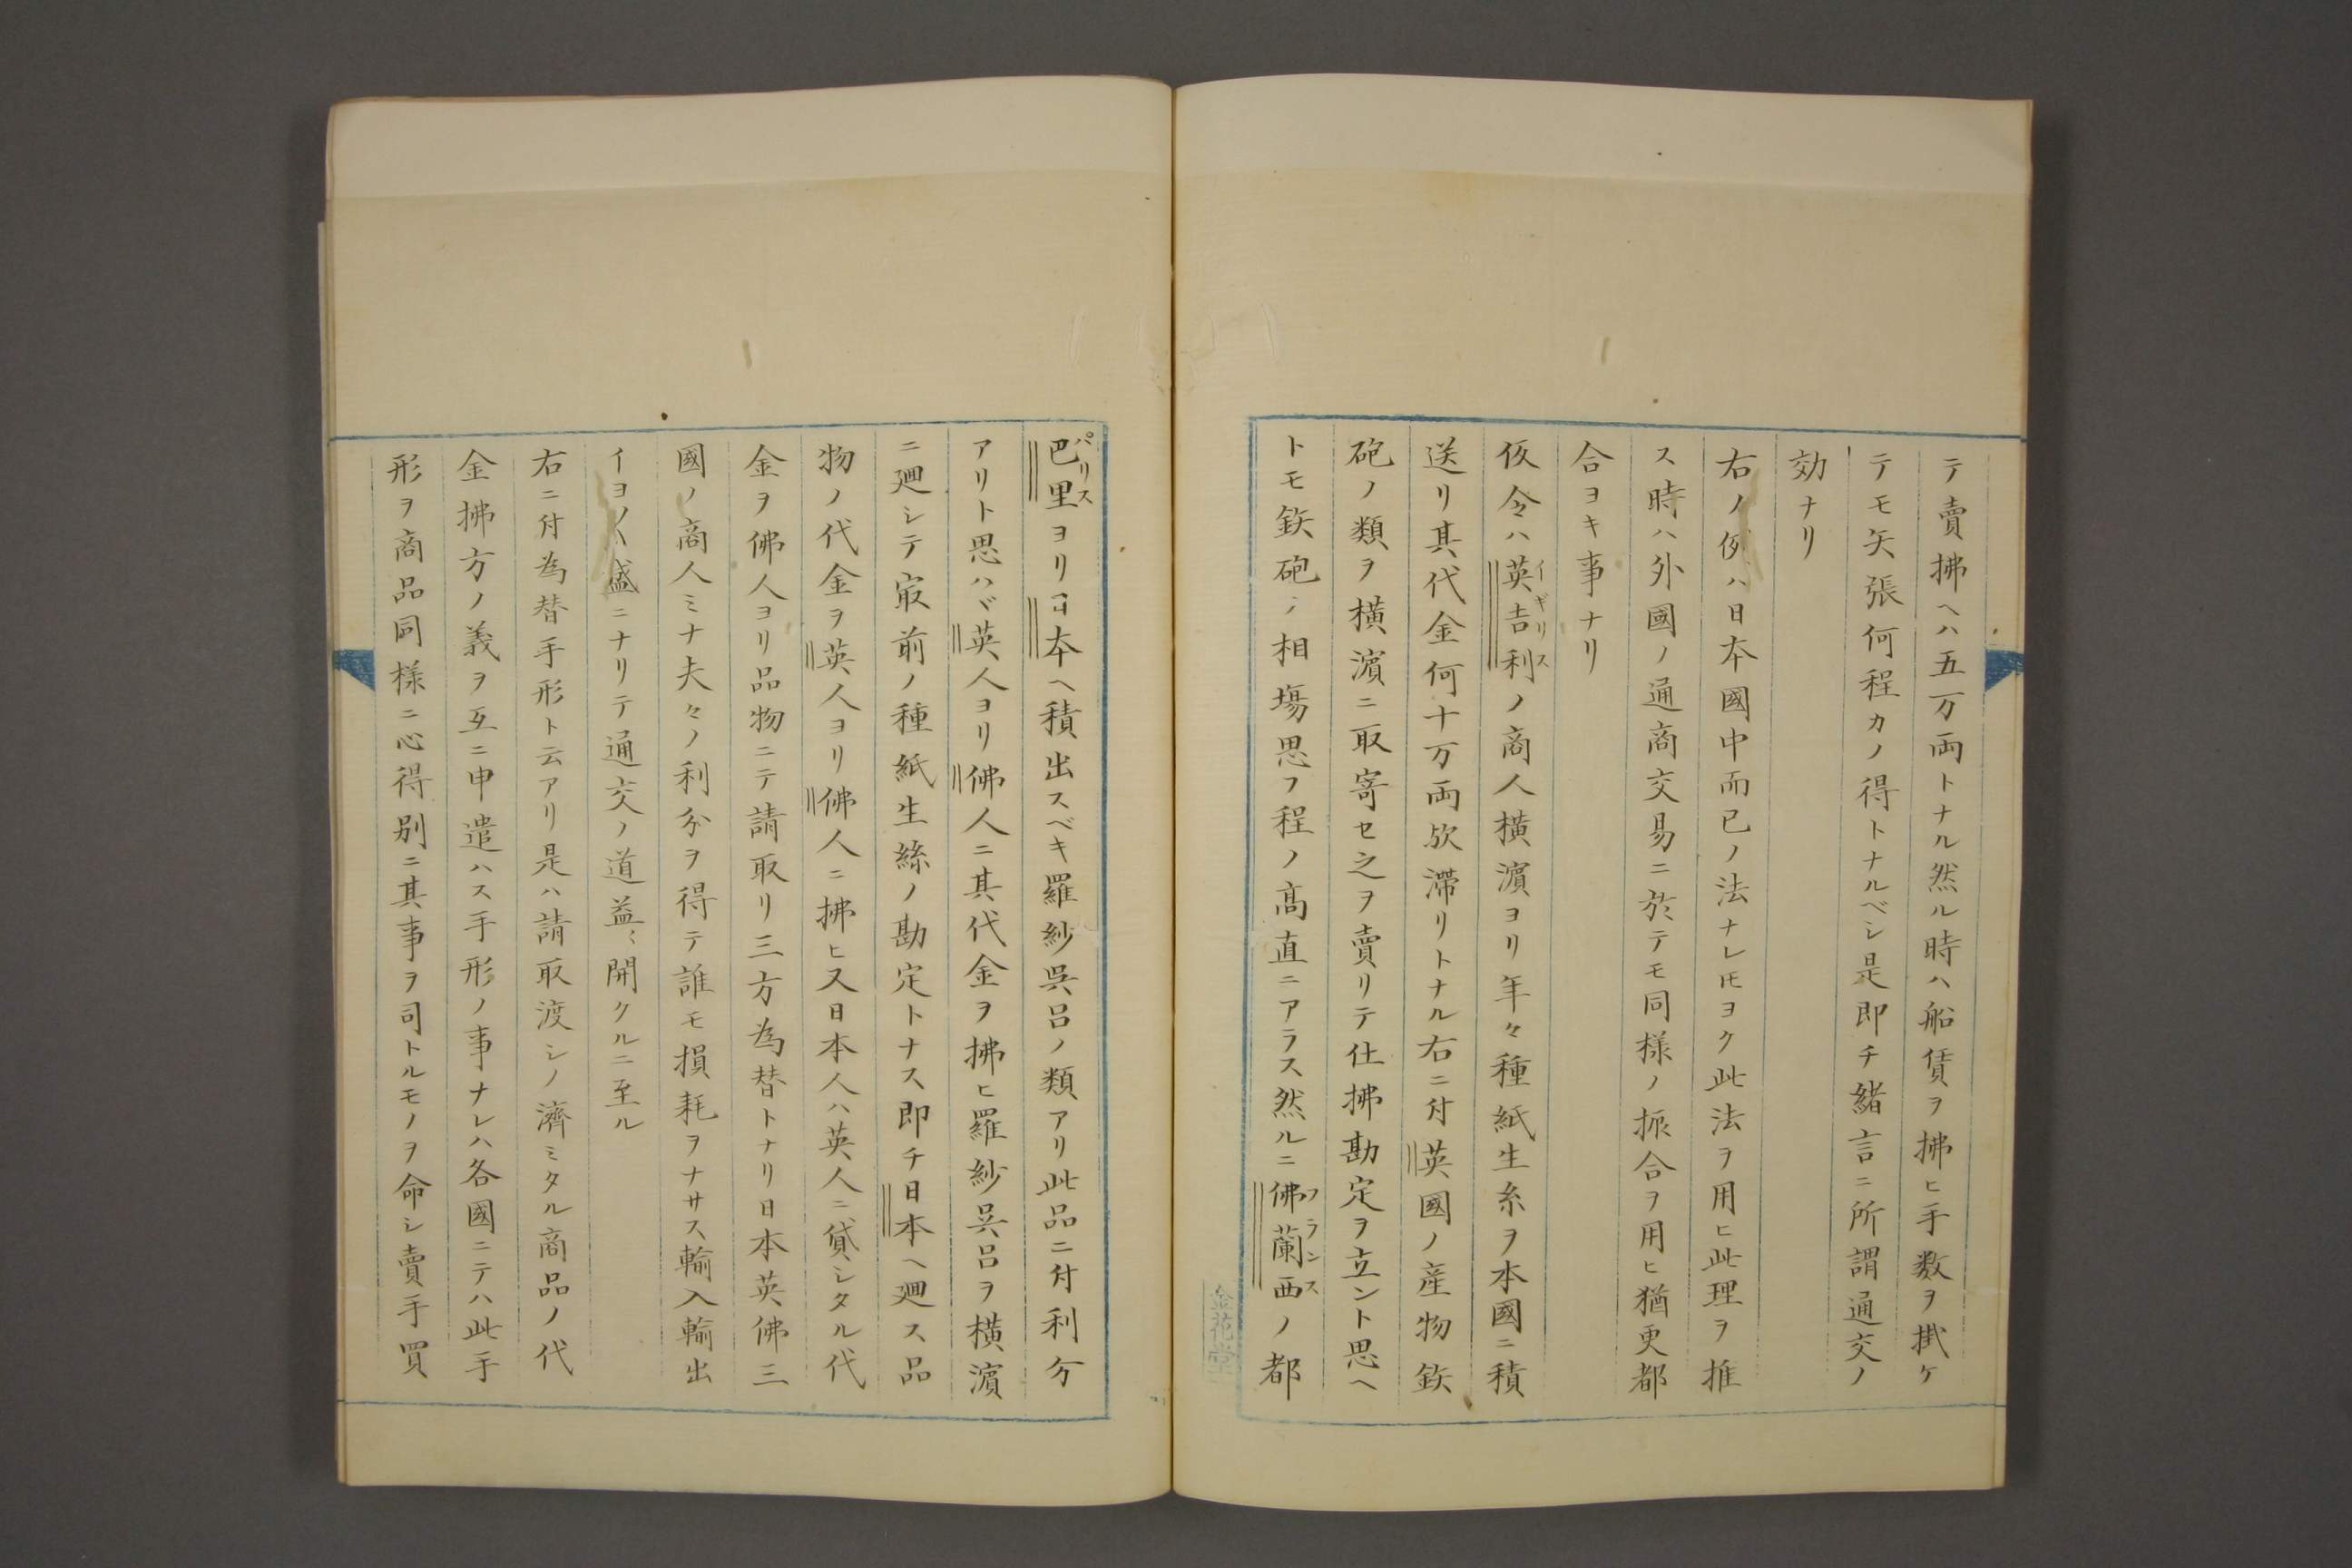 テ賣拂ヘハ五万両トナル然ル時ハ船賃ヲ拂ヒ手数ヲ掛ケ
テモ矢張何程カノ得トナルベシ是即チ緒言ニ所謂通交ノ
効ナリ
右ノ例ハ日本國中而已ノ法ナレ𪜈ヨク此法ヲ用ヒ此理ヲ推
ス時ハ外國ノ通商交易ニ於テモ同様ノ振合ヲ用ヒ猶更都
合ヨキ事ナリ
仮令ハ英吉利ノ商人横濵ヨリ年々種紙生糸ヲ本國ニ積
イギリス
送リ其代金何十万両欤滞リトナル右ニ付英國ノ産物鉃
砲ノ類ヲ横濵ニ取寄セ之ヲ賣リテ仕拂勘定ヲ立ント思ヘ
トモ鉃砲ノ相塲思フ程ノ髙直ニアラス然ルニ佛蘭西ノ都
フランス
金花堂
巴里ヨリ日本ヘ積出スベキ羅紗呉呂ノ類アリ此品ニ付利分
パリス
アリト思ハヾ英人ヨリ佛人ニ其代金ヲ拂ヒ羅紗呉呂ヲ横濵
ニ廻シテ㝡前ノ種紙生絲ノ勘定トナス即チ日本ヘ廻ス品
物ノ代金ヲ英人ヨリ佛人ニ拂ヒ又日本人ハ英人ニ貸シタル代
金ヲ佛人ヨリ品物ニテ請取リ三方為替トナリ日本英佛三
國ノ商人ミナ夫々ノ利分ヲ得テ誰モ損耗ヲナサス輸入輸出
イヨ〱盛ニナリテ通交ノ道益〻開クルニ至ル
右ニ付為替手形ト云アリ是ハ請取渡シノ濟ミタル商品ノ代
金拂方ノ義ヲ互ニ申遣ハス手形ノ事ナレハ各國ニテハ此手
形ヲ商品同様ニ心得別ニ其事ヲ司トルモノヲ命シ賣手買